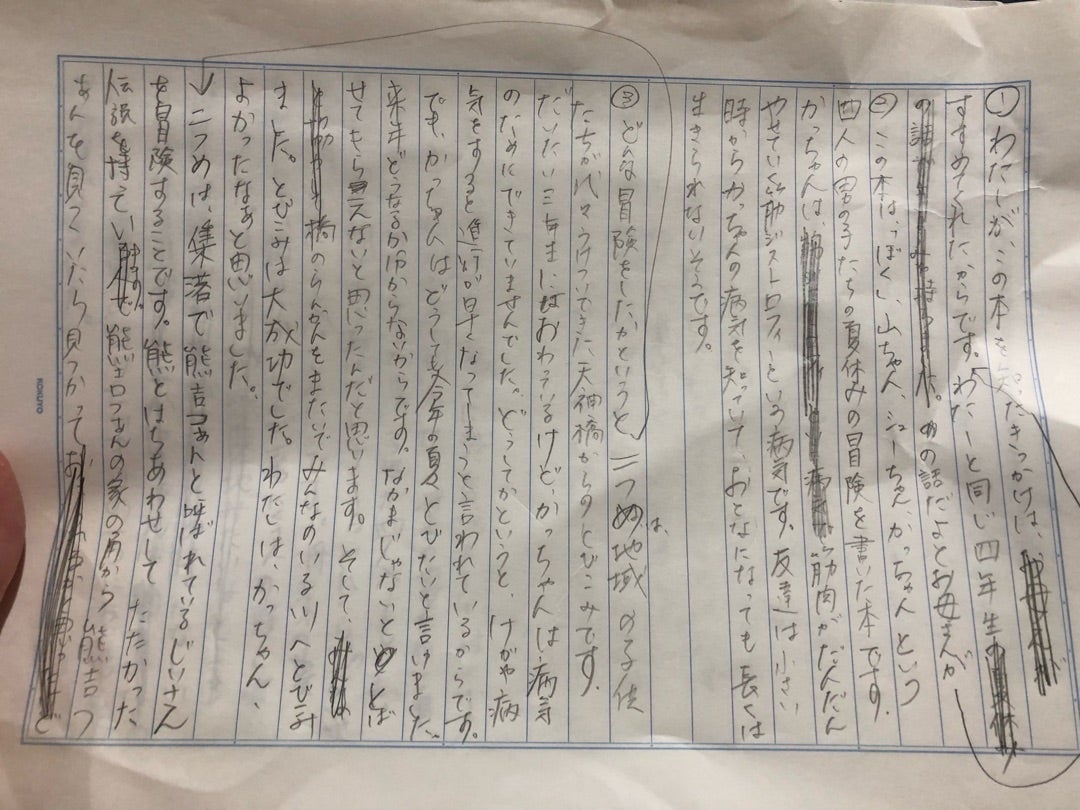 ①わたしが、この本を知ったきっかけは、
すすめてくれたからです。わたしと同じ四年生の
の話だよとお母さんが
②この本は、「ぼく」、山ちゃん、シューちえ かっちゃんという
四人の男の子たちの夏休みの冒険を書いた本です。
かっちゃんは、筋肉がだんだん
やせていく筋ジストロフィーという病気です。友達は小さい
時からかっちゃんの病気を知っていて、おとなになっても長くは
生きられないそうです。
③どんな冒険をしたかというと 一つめは、地域の子供
たちが代々うけついできた天神橋からのとびこみです。
だいたい三年生にはおわっているけど、かっちゃんは病気
のためにできていませんでした。どうしてかというと、けがや病
気をすると進行が早くなってしまうと言われているからです。
でも、かっちゃんはどうしても今年の夏とびたいと言いました。
来年どうなるか分からないからです。なかまじゃないととば
せてもらえないと思ったんだと思います。そして、
橋のらんかんをまたいでみんなのいる川へとびこみ
ました。とびこみは大成功でした。わたしは、かっちゃん、
よかったなぁと思いました。
二つめは、集落で熊吉つぁんと呼ばれているじいさん
を冒険することです。熊とはちあわせして たたかった
伝説を持っている 熊吉つぁんの家の角から 熊吉つ
ぁんを見ていたら見つかって
KOKUYO